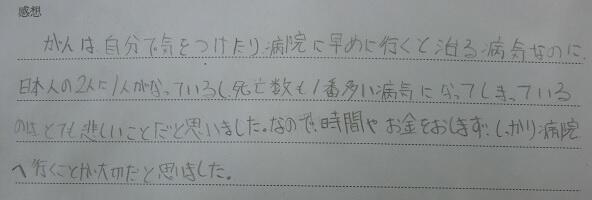 感想
がんは、自分で気をつけたり、病院に早めに行くと治る病気なのに、
日本人の2人に1人がなっているし、死亡数も1番多い病気になってしまっている
のは、とても悲しいことだと思いました。なので、時間やお金をおしまず、しっかり病院
へ行くことが大切だと思いました。